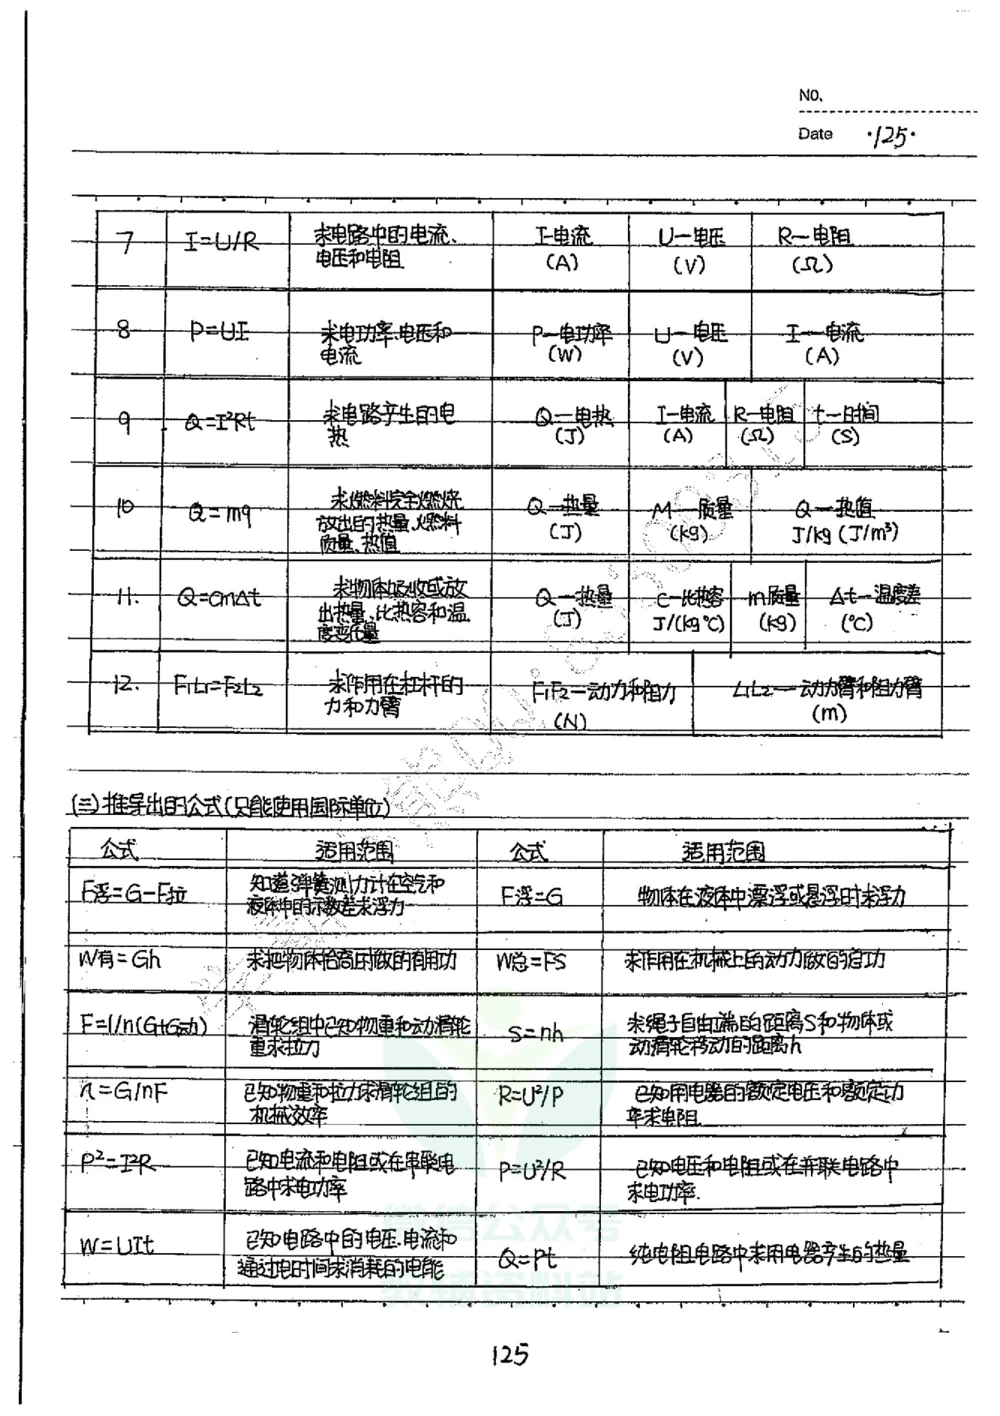 NO.
Date ·125·
7 I=U/R 求电路中的电流、 I-电流 U-电压 R-电阻
电压和电阻 (A) (V) (Ω)
8 P=UI 求电功率.电压和 P-电功率 U-电压 I-电流
电流 (W) (V) (A)
9 Q=I²Rt 求电路产生的电 Q-电热 I-电流 R-电阻 t-时间
热 (J) (A) (Ω) (S)
10 Q=mq 求燃料完全燃烧 Q-热量 M-质量 Q-热值
放出的热量、燃料 (J) (kg) J/kg (J/m³)
质量、热值
11. Q=cm∆t 求物体吸收或放 Q-热量 c-比热容 m质量 ∆t-温度差
出热量、比热容和温 (J) J/(kg℃) (kg) (℃)
度变化量
12. F₁L₁=F₂L₂ 求作用在杠杆的 F₁F₂-动力和阻力 L₁L₂-动力臂和阻力臂
力和力臂 (N) (m)
(三)推导出的公式(只能使用国际单位)
公式 适用范围 公式 适用范围
F浮=G-F拉 知道弹簧测力计在空气和 F浮=G 物体在液体中漂浮或悬浮时求浮力
液体中的示数差求浮力
W有=Gh 求把物体抬高时做的有用功 W总=FS 求作用在机械上的动力做的总功
F=1/n(G+G动) 滑轮组中已知物重和动滑轮 S=nh 求绳子自由端的距离S和物体或
重求拉力 动滑轮移动的距离h
η=G/nF 已知物重和拉力求滑轮组的 R=U²/P 已知用电器的额定电压和额定功
机械效率 率求电阻
P²=I²R 已知电流和电阻或在串联电 P=U²/R 已知电压和电阻或在并联电路中
路中求电功率 求电功率.
W=UIt 已知电路中的电压.电流和 Q=Pt 纯电阻电路中求用电器产生的热量
通过电时间求消耗的电能
微信公众号
教辅资料站
125